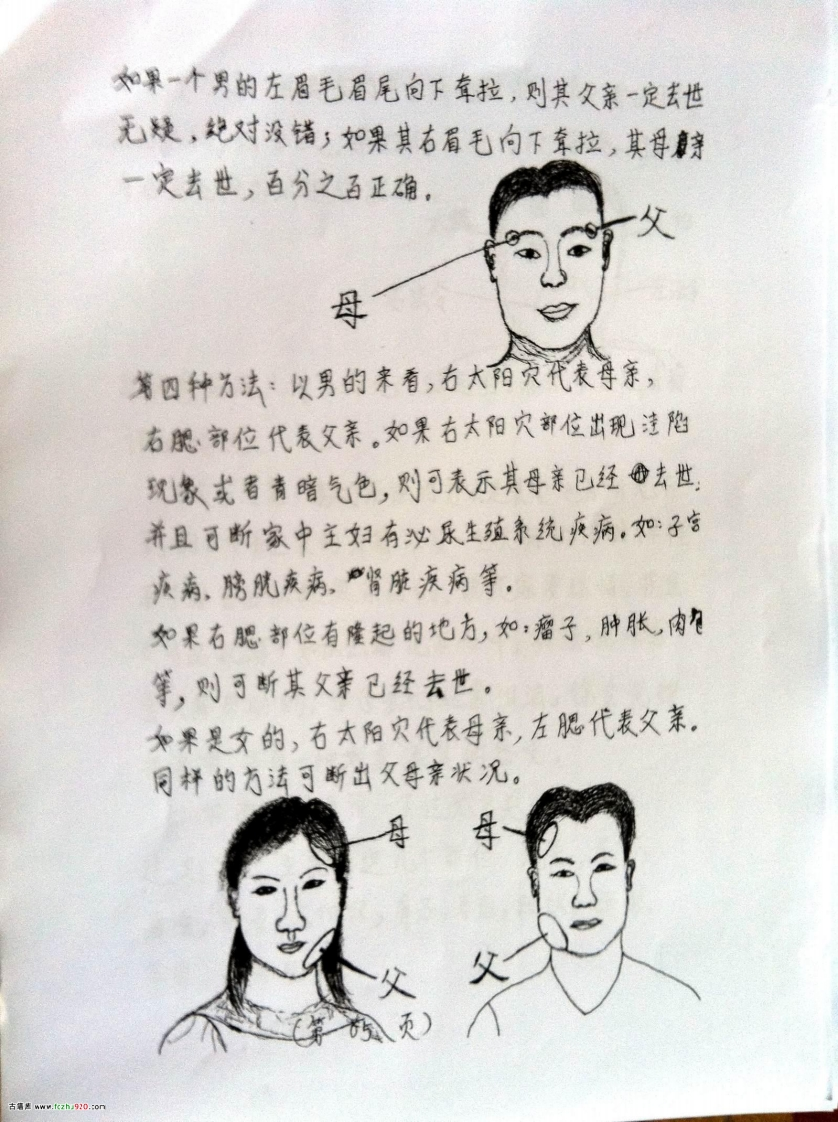 如果一个男的左眉毛眉尾向下耷拉，则其父亲一定去世
无疑，绝对没错；如果其右眉毛向下耷拉，其母亲
一定去世，百分之百正确。
父
母
第四种方法：以男的来看，右太阳穴代表母亲，
右腮部位代表父亲。如果右太阳穴部位出现洼陷
现象或者青暗气色，则可表示其母亲已经去世；
并且可断家中主妇有泌尿生殖系统疾病。如：子宫
疾病、膀胱疾病、肾脏疾病等。
如果右腮部位有隆起的地方，如：瘤子，肿胀，肉包
等，则可断其父亲已经去世。
如果是女的，右太阳穴代表母亲，左腮代表父亲。
同样的方法可断出父母亲状况。
母 母
父 父
(第85页)
www.fczhu920.com